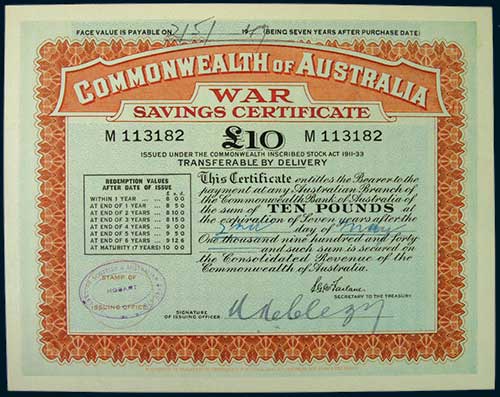 FACE VALUE IS PAYABLE ON 2/5/ 19 47 (BEING SEVEN YEARS AFTER PURCHASE DATE)
COMMONWEALTH OF AUSTRALIA
WAR
SAVINGS CERTIFICATE
M 113182 £10 M 113182
ISSUED UNDER THE COMMONWEALTH INSCRIBED STOCK ACT 1911-33
TRANSFERABLE BY DELIVERY
REDEMPTION VALUES
AFTER DATE OF ISSUE
£ s. d.
WITHIN 1 YEAR ... 8 0 0
AT END OF 1 YEAR ... 8 5 0
AT END OF 2 YEARS ... 8 10 0
AT END OF 3 YEARS ... 8 15 0
AT END OF 4 YEARS ... 9 0 0
AT END OF 5 YEARS ... 9 5 0
AT END OF 6 YEARS ... 9 12 6
AT MATURITY (7 YEARS) 10 0 0
This Certificate entitles the Bearer to the
payment at any Australian Branch of
the Commonwealth Bank of Australia of
the sum of TEN POUNDS at the
expiration of Seven years after the
2nd day of May
One thousand nine hundred and forty
and such sum is secured on
the Consolidated Revenue of the
Commonwealth of Australia.
STAMP OF
HOBART
ISSUING OFFICE
SECRETARY TO THE TREASURY
SIGNATURE
OF ISSUING OFFICER